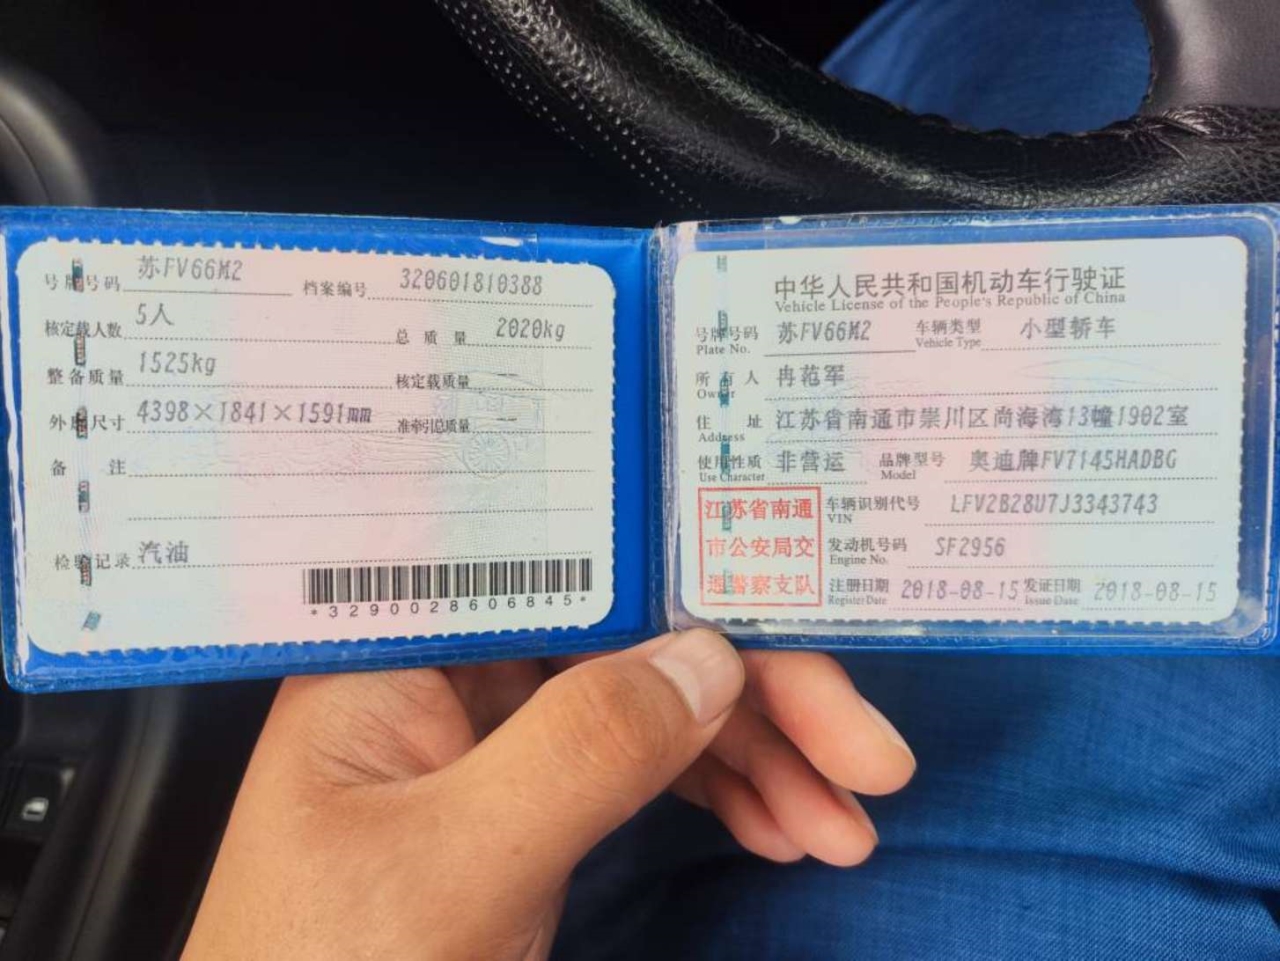 号牌号码 苏FV66M2 档案编号 320601810388
核定载人数 5人 总质量 2020kg
整备质量 1525kg 核定载质量 —
外廓尺寸 4398×1841×1591mm 准牵引总质量 —
备注
检验记录 汽油
*3290028606845*
中华人民共和国机动车行驶证
Vehicle License of the People's Republic of China
号牌号码 苏FV66M2 车辆类型 小型轿车
Plate No. Vehicle Type
所有人 冉范军
Owner
住址 江苏省南通市崇川区尚海湾13幢1902室
Address
使用性质 非营运 品牌型号 奥迪牌FV7145HADBG
Use Character Model
江苏省南通 车辆识别代号 LFV2B28U7J3343743
VIN
市公安局交 发动机号码 SF2956
Engine No.
通警察支队 注册日期 2018-08-15 发证日期 2018-08-15
Register Date Issue Date